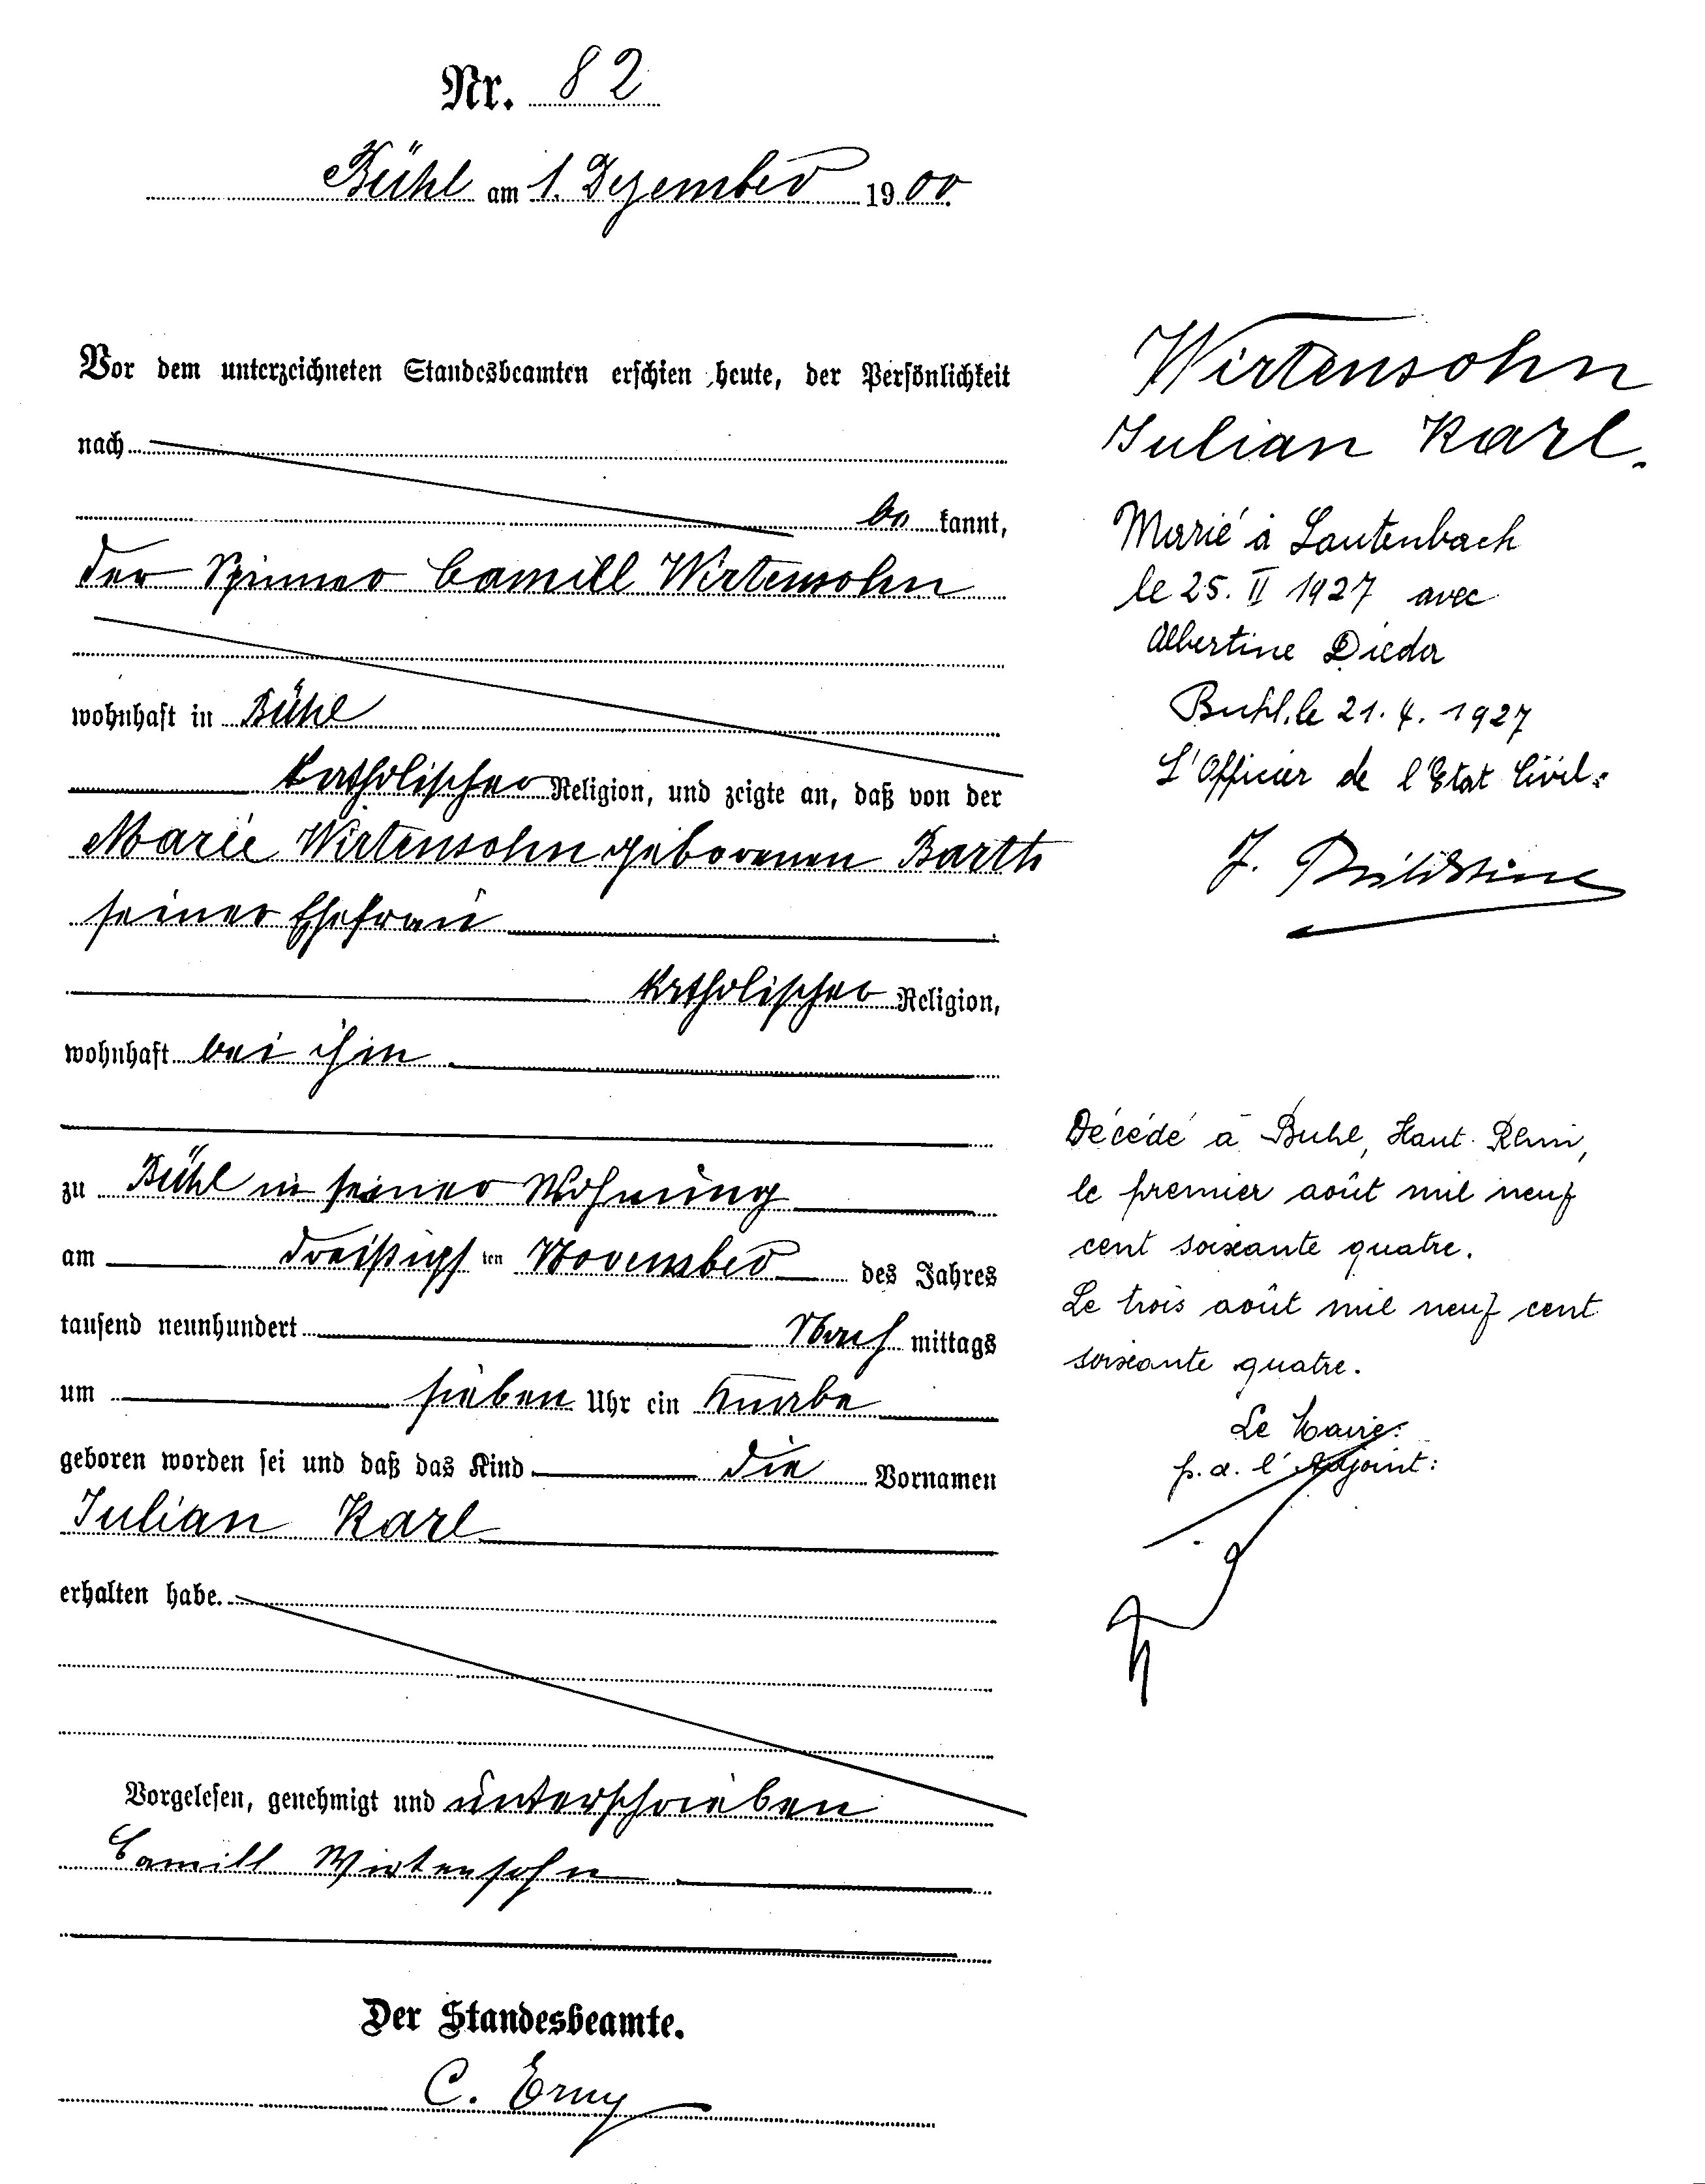 Nr. 82
Bühl am 1. Dezember 1900.
Vor dem unterzeichneten Standesbeamten erschien heute, der Persönlichkeit
nach
be kannt,
der Spinner Camill Wirtensohn
wohnhaft in Bühl
katholischer Religion, und zeigte an, daß von der
Marie Wirtensohn geborenen Barth
seiner Ehefrau
katholischer Religion,
wohnhaft bei ihm
zu Bühl in seiner Wohnung
am dreißigsten November des Jahres
tausend neunhundert Nach mittags
um sieben Uhr ein Knabe
geboren worden sei und daß das Kind die Vornamen
Julian Karl
erhalten habe.
Vorgelesen, genehmigt und unterschrieben
Camill Wirtensohn
Der Standesbeamte.
C. Erny
Wirtensohn
Julian Karl.
Marié à Lautenbach
le 25. II 1927 avec
Albertine
Buhl, le 21. 4. 1927
L'Officier de l'Etat Civil:
J.
Décédé à Buhl, Haut-Rhin,
le premier août mil neuf
cent soixante quatre.
Le trois août mil neuf cent
soixante quatre.
Le Maire:
p. d. l'Adjoint: